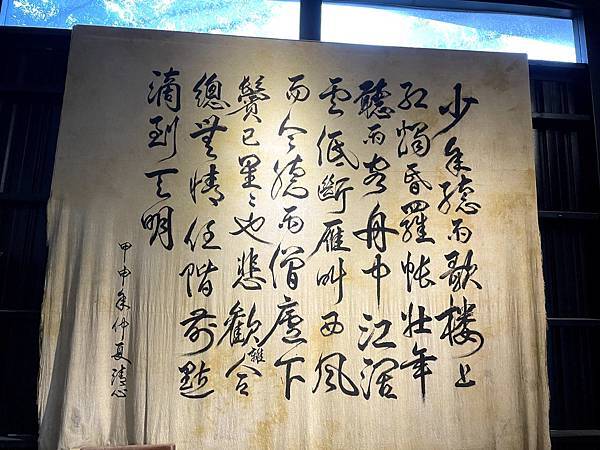 少年聽雨歌樓上
紅燭昏羅帳壯年
聽雨客舟中江闊
云低斷雁叫西風
而今聽雨僧廬下
鬢已星々也悲歡離合
總無情任階前點
滴到天明
甲申年仲夏清心